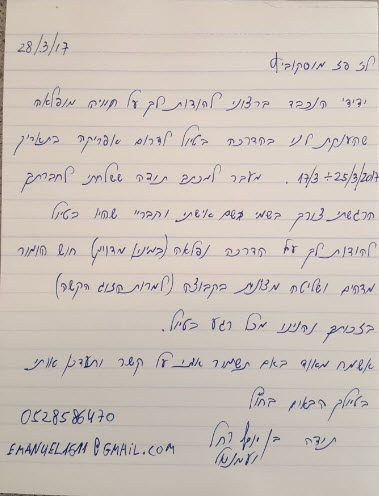 28/3/17
לז פז מוסקוביץ
ידידי הנכבד ברצוני להודות לך על חוויה מופלאה
שהענקת לנו בהדרכה בטיול לדרום אפריקה בתאריך
17/3 ÷ 25/3/2017. מעבר למכתב תודה ששלחתי לחברתך
הרגשתי צורך בשמי בשם אישתי וחבריי שהיו בטיול
להודות לך על הדרכה נפלאה (במינון מדויק) חוש הומור
מדהים ושליטה מצוינת בקבוצה (למרות הזוג הקשה)
בזכותך נהנינו מכל רגע בטיול.
אשמח מאוד באם תשמור איתי על קשר ותעדכן אותי
בטיולך הבאים בחו"ל
תודה בן יוסף רחל
ועמנואל
0528586470
EMANUEL1611@GMAIL.COM